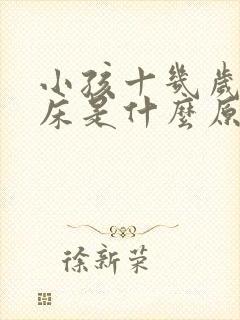 小孩十幾歲
床是什麼原
徐新荣